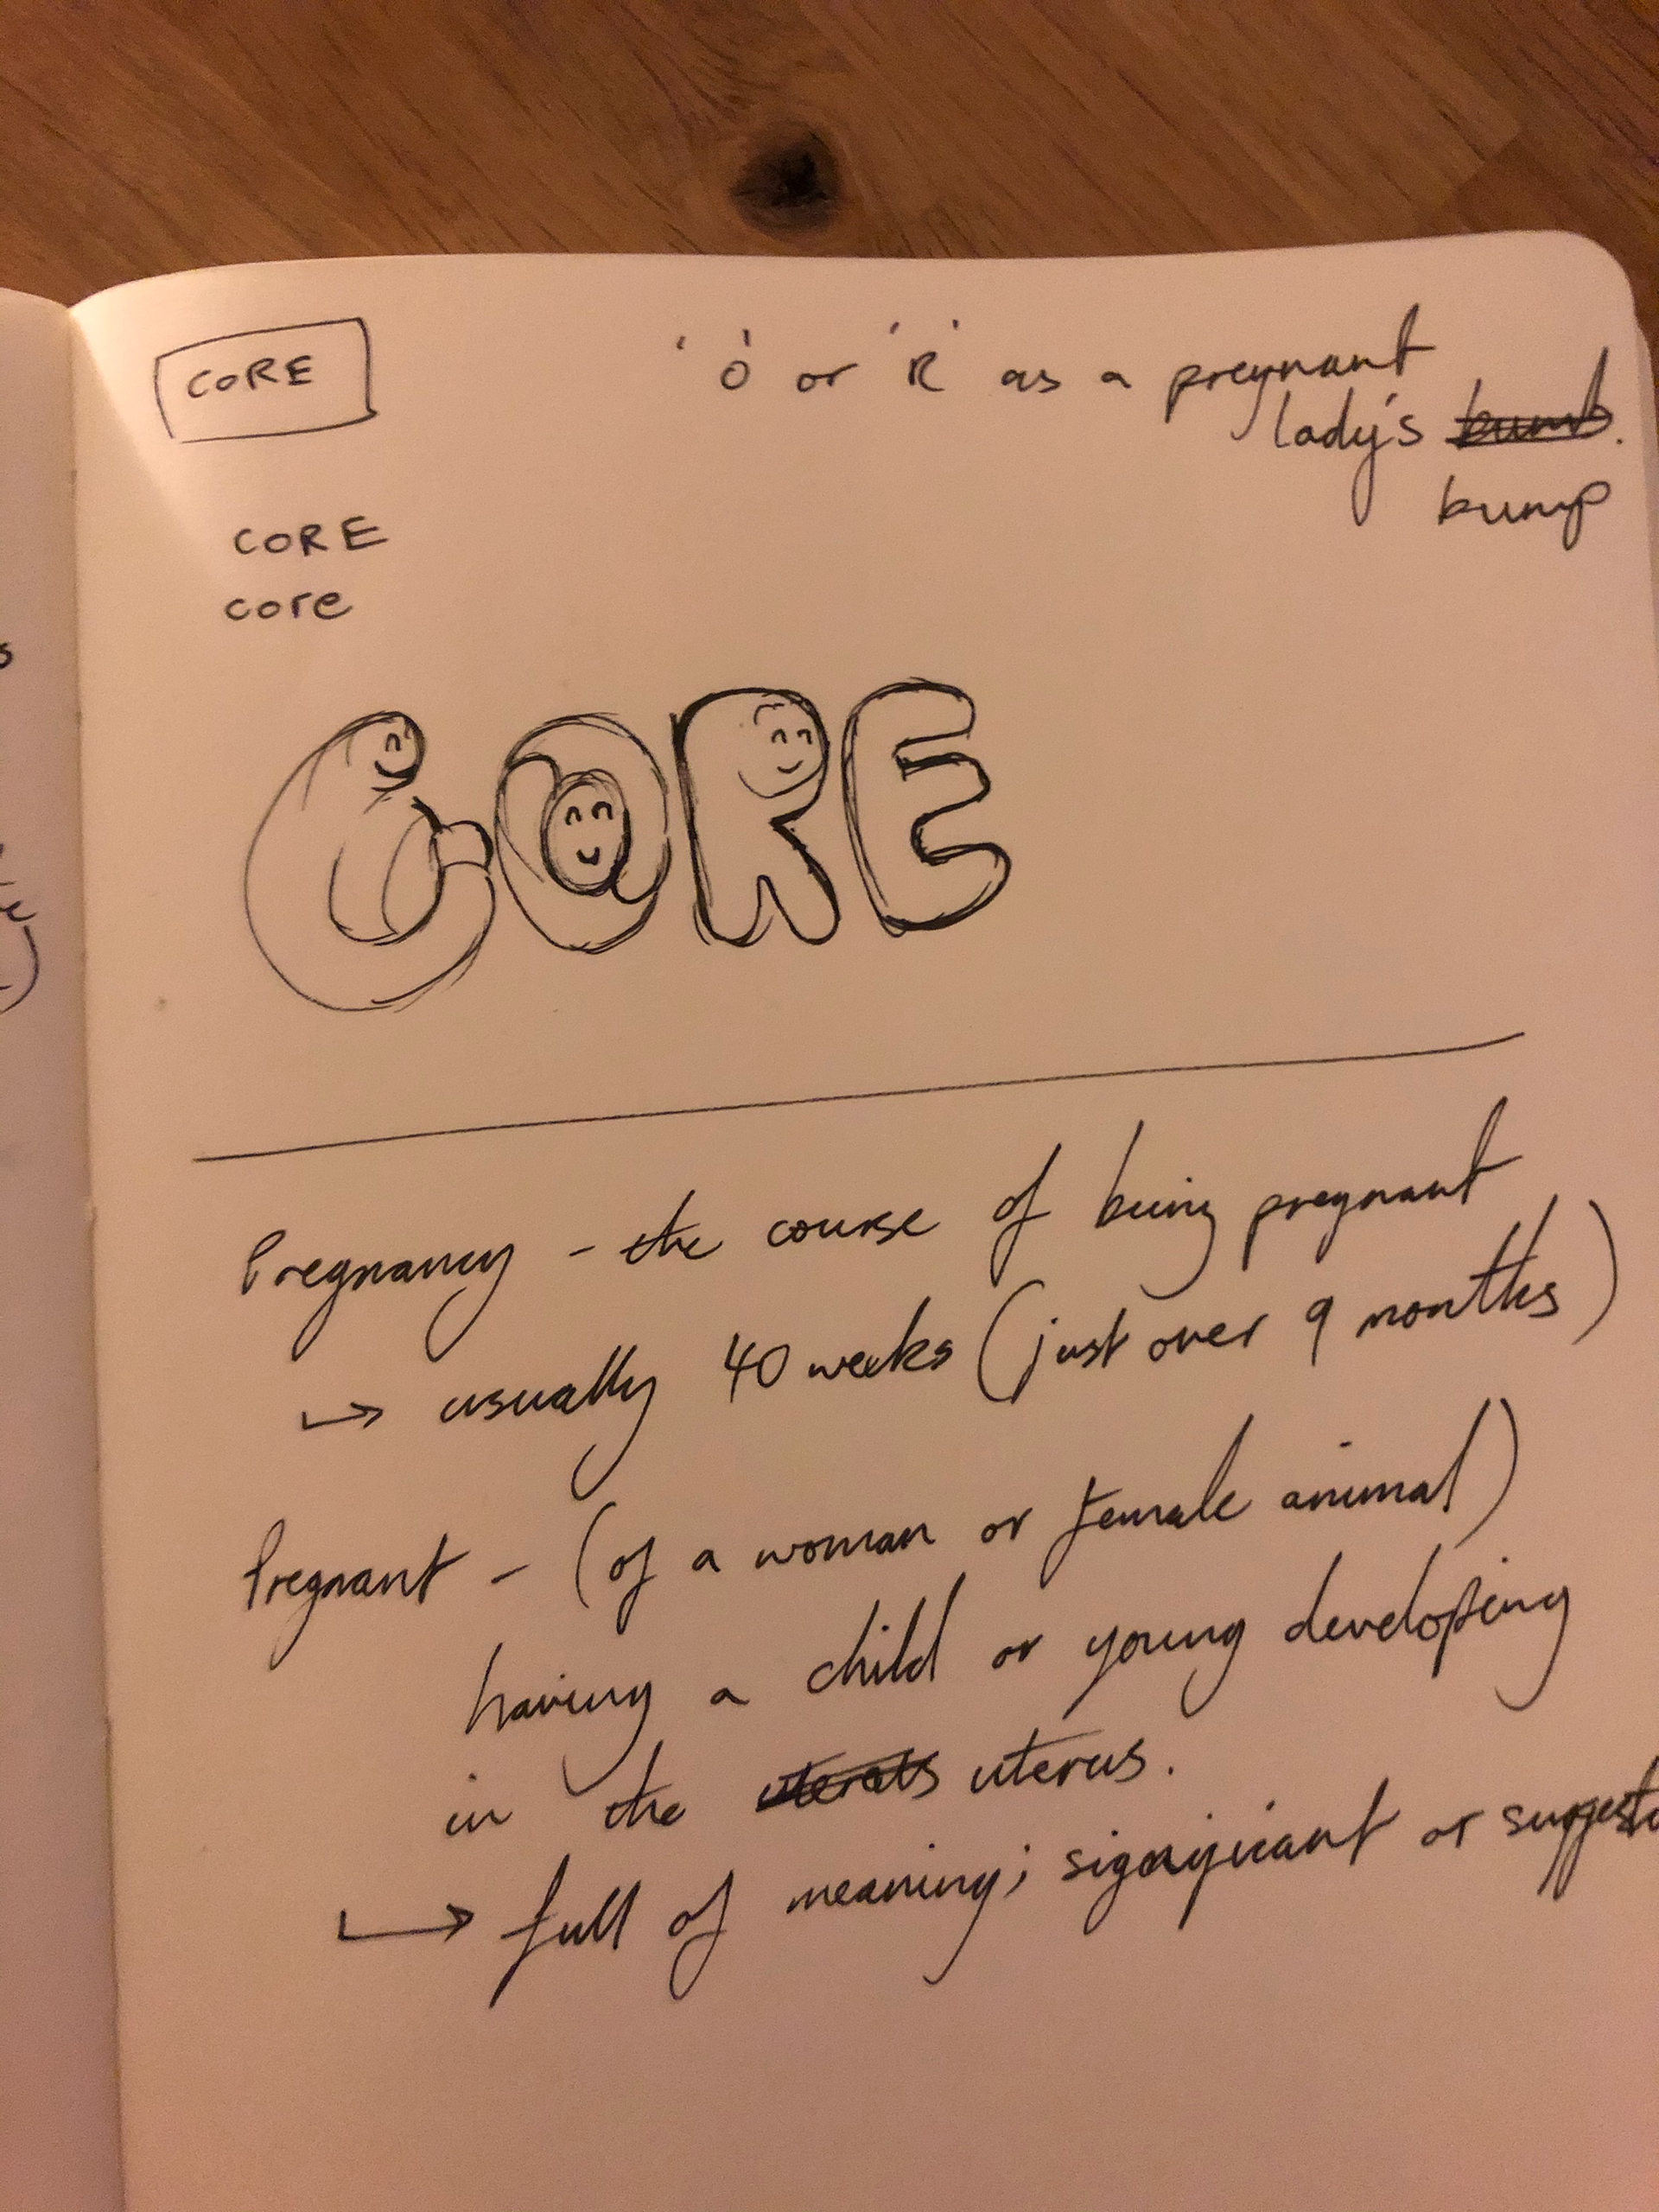 CORE
'O' or 'R' as a pregnant
lady's bumb.
bump
CORE
core
CORE
Pregnancy - the course of being pregnant
→ usually 40 weeks (just over 9 months)
Pregnant - (of a woman or female animal)
having a child or young developing
in the uterus.
→ full of meaning; significant or
s